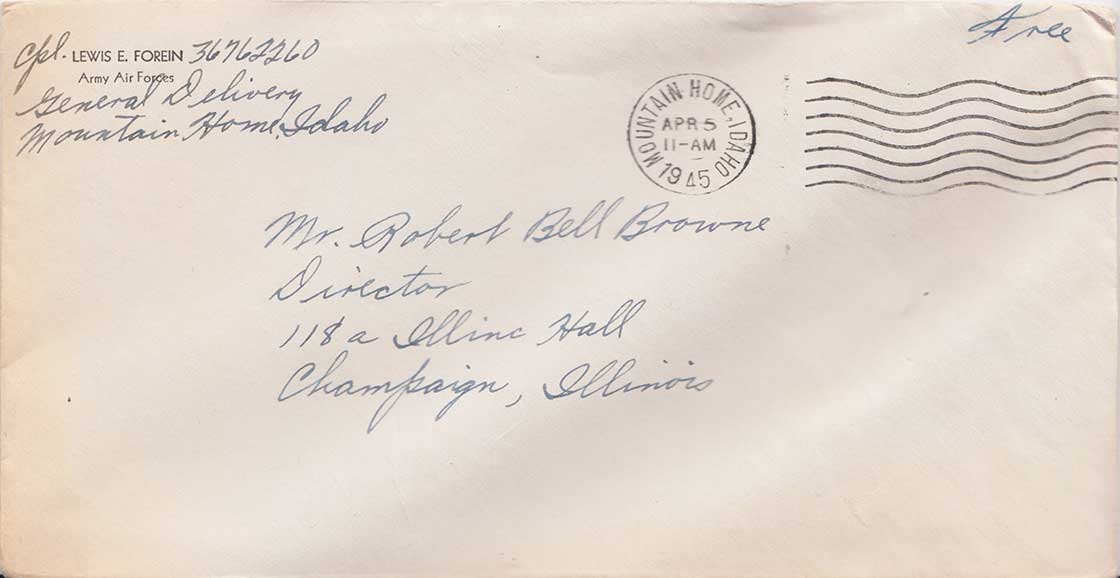 Cpl. LEWIS E. FOREIN 36762260
Army Air Forces
General Delivery
Mountain Home, Idaho
Free
MOUNTAIN HOME, IDAHO
APR 5
11-AM
1945
Mr. Robert Bell Browne
Director
118a Illinc Hall
Champaign, Illinois